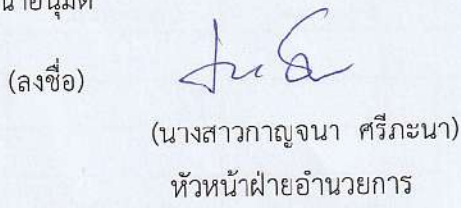 (ลงชื่อ)
(นางสาวกาญจนา ศรีภะนา)
หัวหน้าฝ่ายอำนวยการ